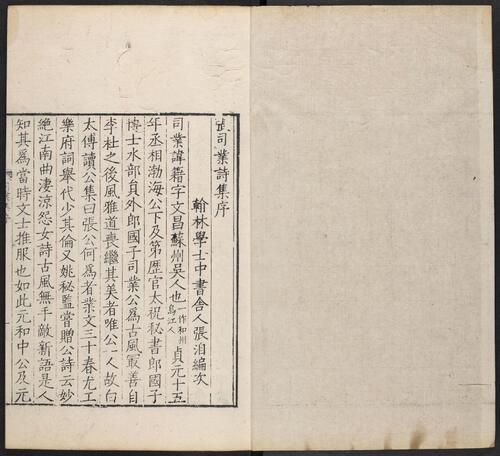 司業詩集序
翰林學士中書舍人張洎編次
司業諱籍字文昌蘇州吳人也一作和州烏江人貞元十五
年丞相渤海公下及第歷官太祝秘書郎國子
博士水部員外郎國子司業公為古風冣善自
李杜之後風雅道喪繼其美者唯公一人故白
太傅讀公集曰張公何為者業文三十春尤工
樂府詞舉代少其倫又姚秘監嘗贈公詩云妙
絕江南曲淒涼怨女詩古風無手敵新語是人
知其為當時文士推服也如此元和中公及元